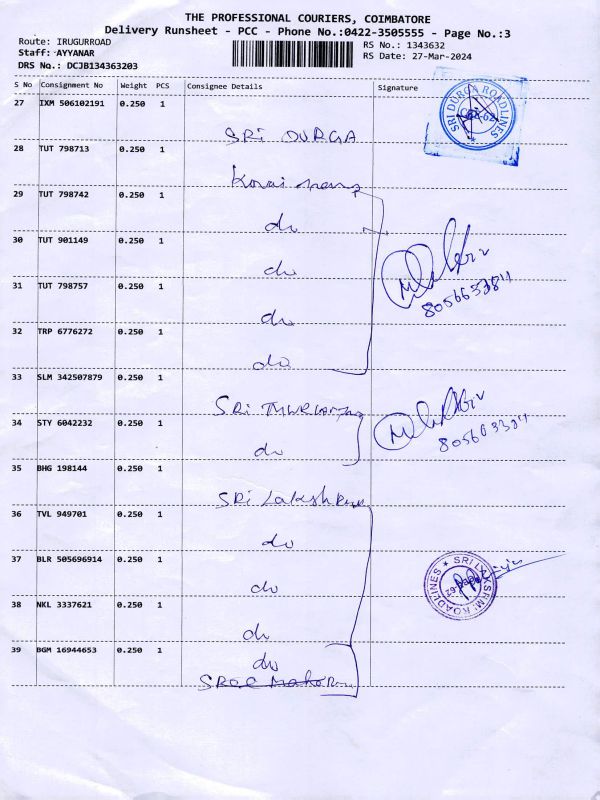 THE PROFESSIONAL COURIERS, COIMBATORE
Delivery Runsheet - PCC - Phone No.:0422-3505555 - Page No.:3
Route: IRUGURROAD
RS No.: 1343632
Staff: AYYANAR
RS Date: 27-Mar-2024
DRS No.: DCJB134363203
S No Consignment No Weight PCS Consignee Details Signature
27 IXM 506102191 0.250 1
SRI DURGA
SRI DURGA ROADLINES
CBE-62
28 TUT 798713 0.250 1
Kovai
29 TUT 798742 0.250 1
do
30 TUT 901149 0.250 1
do
8056633811
31 TUT 798757 0.250 1
do
32 TRP 6776272 0.250 1
do
33 SLM 342507879 0.250 1
SRi
34 STY 6042232 0.250 1
do
35 BHG 198144 0.250 1
SRi Lakshmi
36 TVL 949701 0.250 1
do
37 BLR 505696914 0.250 1
do
SRI LAKSHMI ROADLINES
38 NKL 3337621 0.250 1
do
39 BGM 16944653 0.250 1
do